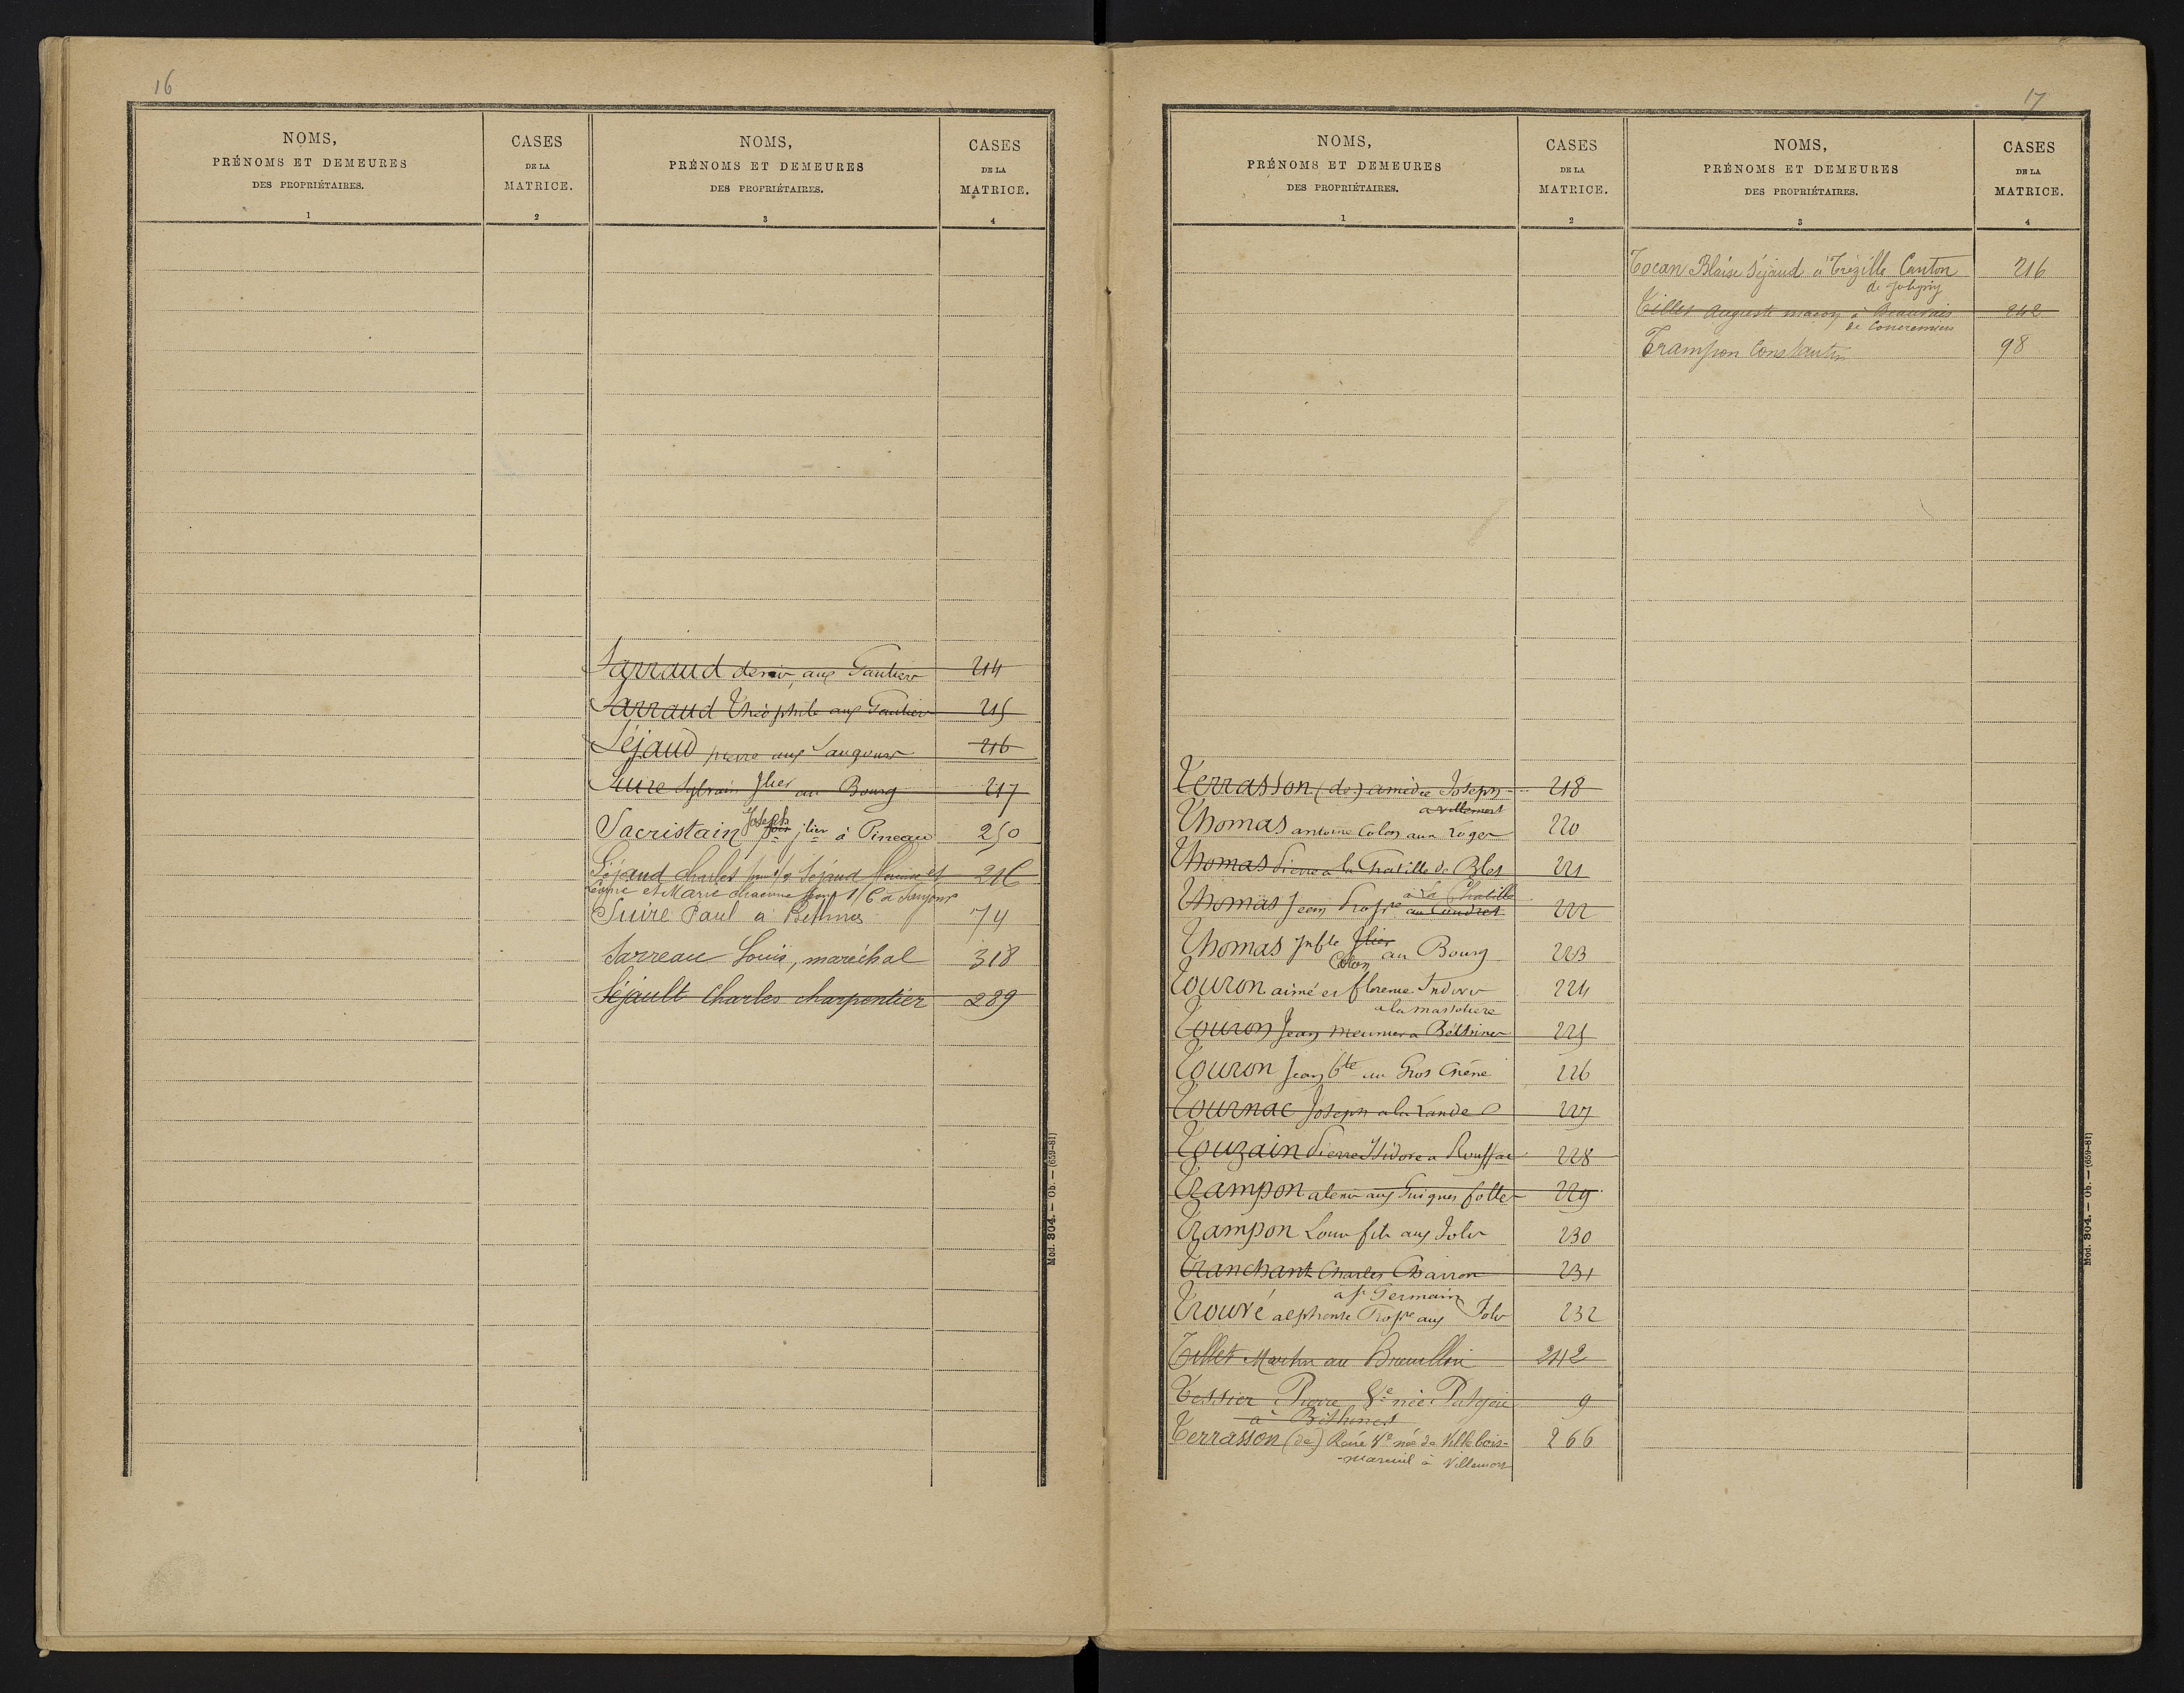 16
NOMS,
PRÉNOMS ET DEMEURES
DES PROPRIÉTAIRES.
1
CASES
DE LA
MATRICE.
2
NOMS,
PRÉNOMS ET DEMEURES
DES PROPRIÉTAIRES.
3
CASES
DE LA
MATRICE.
4
Sarraud denis, aux Gautiers 214
Sarraud Théophile aux Gautiers 215
Séjaud pierre aux 216
Suire Sylvain Jlier au Bourg 217
Sacristain Joseph jlier à Pineau 250
Séjaud Charles Séjaud et 216
et Marie chacune pour 1/6 à
Suire Paul à Bethines 74
Sarreau Louis, maréchal 318
Séjault Charles charpentier 289
Mod. 304. — Ob. — (659-81)
17
NOMS,
PRÉNOMS ET DEMEURES
DES PROPRIÉTAIRES.
1
CASES
DE LA
MATRICE.
2
NOMS,
PRÉNOMS ET DEMEURES
DES PROPRIÉTAIRES.
3
CASES
DE LA
MATRICE.
4
Terrasson (de) amédée Joseph 218
a villemort
Thomas antoine Colon aux Loges 220
Thomas Pierre à la Chatille de Bles 221
à La Chatille
Thomas Jean Propre au Coudret 222
Thomas Jnble Jlier au Bourg 223
Colon
Touron aimé et florence Indivis 224
a la massoliere
Touron Jean meunier a Béthines 225
Touron Jean bte au Gros Chêne 226
Tournac Joseph a la Lande 227
Touzain Pierre Isidore a Rouffac 228
Trampon alexis aux Guignes folles 229
Trampon Louis fils aux Jolis 230
Tranchant Charles Charron 231
a St Germain
Trouvé alphonse Propre aux Jolis 232
Tillet Martin au Breuillon 242
Tessier Pierre Ve née 9
à Béthines
Terrasson (de) René Ve née de Villebois- 266
-mareuil à Villemort
Tocan Blaise Séjaud à Trézille Canton 216
de
Tillet Auguste maçon à Beauvais 242
de Concremiers
Trampon Constantin 98
Mod. 304. — Ob. — (659-81)